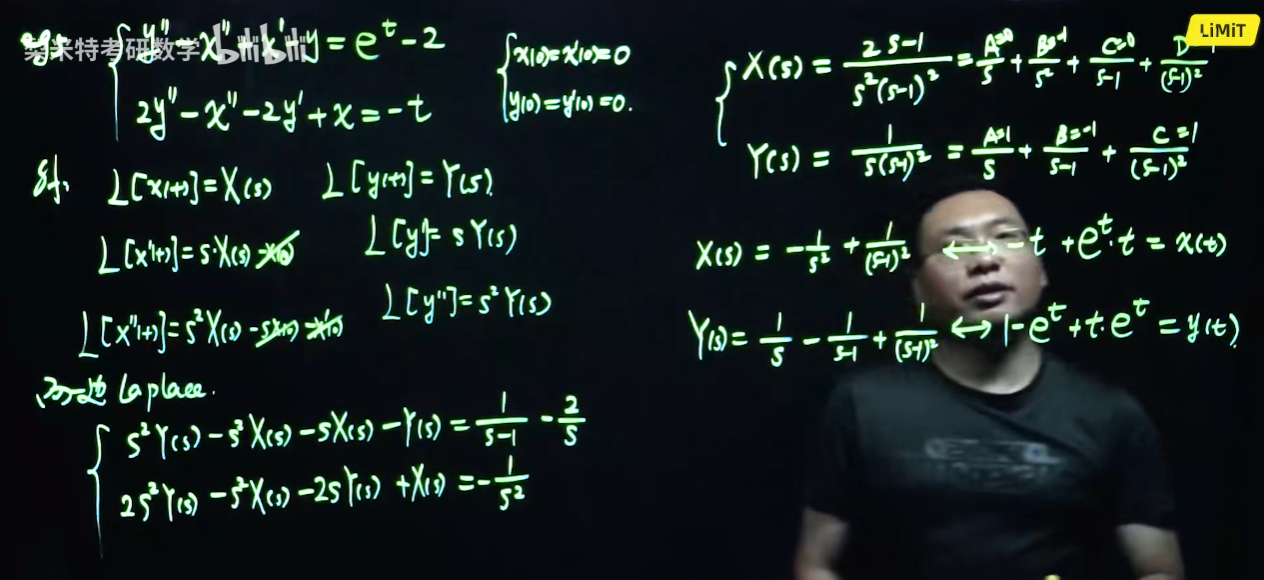 柴米特考研数学 bilibili
LiMiT
y'' - x'' + x' - y = e^t - 2
2y'' - x'' - 2y' + x = -t
x(0) = x'(0) = 0
y(0) = y'(0) = 0.
L[x(t)] = X(s) L[y(t)] = Y(s).
L[x'(t)] = s·X(s) - x(0) L[y'] = sY(s)
L[x''(t)] = s²X(s) - sx(0) - x'(0) L[y''] = s²Y(s)
Laplace.
s²Y(s) - s²X(s) - sX(s) - Y(s) = 1/(s-1) - 2/s
2s²Y(s) - s²X(s) - 2sY(s) + X(s) = -1/s²
X(s) = (2s-1)/(s²(s-1)²) = (A=0)/s + (B=-1)/s² + (C=0)/(s-1) + D/(s-1)²
Y(s) = 1/(s(s-1)²) = (A=1)/s + (B=-1)/(s-1) + (C=1)/(s-1)²
X(s) = -1/s² + 1/(s-1)² ↔ -t + e^t·t = x(t)
Y(s) = 1/s - 1/(s-1) + 1/(s-1)² ↔ 1 - e^t + t·e^t = y(t).